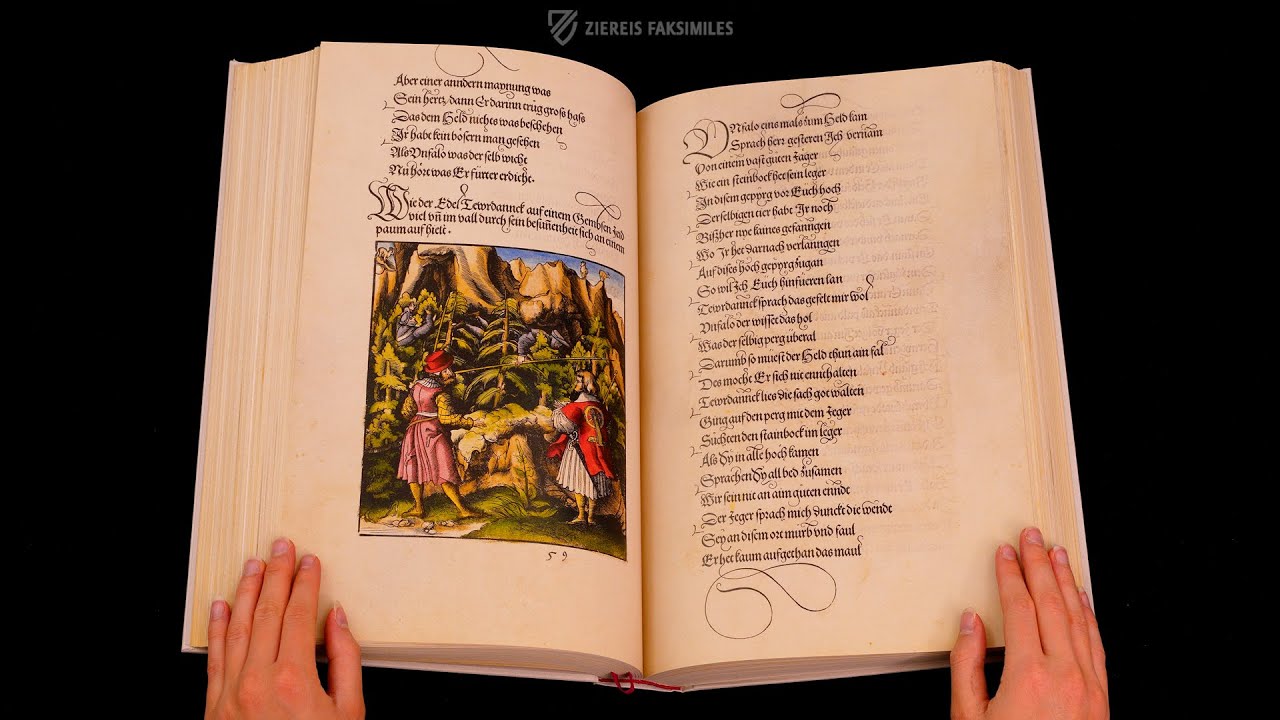 ZIEREIS FAKSIMILES
Aber einer anndern maynung was
Sein hertz, dann Er darinn trůg gross hass
Das dem Held nichts was beschehen
Ir habt kein bösern man gesehen
Als Vnfalo was der selb wicht
Nu hört was Er fürter erdicht.
Wie der Edel Tewrdannck auf einem Gembsen Jaid
viel vñ im vall durch sein besiñenheit sich an einem
paum auf hielt.
59
VNfalo eins mals zum Held kam
Sprach herr gesteren Ich vernam
Von einem vast gůten Jäger
Wie ein steinbock het sein leger
In disem gepyrg vor Euch hoch
Derselbigen tier habt Ir noch
Bißher nye kaines gefanngen
Wo Ir het darnach verlanngen
Auf dises hoch gepyrg zugan
So wil Ich Euch hinfüeren lan
Tewrdannck sprach das gefelt mir wol
Vnfalo der wisset das hol
Was der selbig perg überal
Darumb so müest der Held thun ain fal
Des mocht Er sich nit ennthalten
Tewrdannck lies die sach got walten
Ging auf den perg mit dem Jeger
Sůchten den stainbock im leger
Als Sy in alle hoch kamen
Sprachen Sy all bed zusamen
Wir sein nit an aim gůten enndt
Der Jeger sprach mich dunckt die wendt
Sey an disem ort murb vnd faul
Er het kaum aufgethan das maul